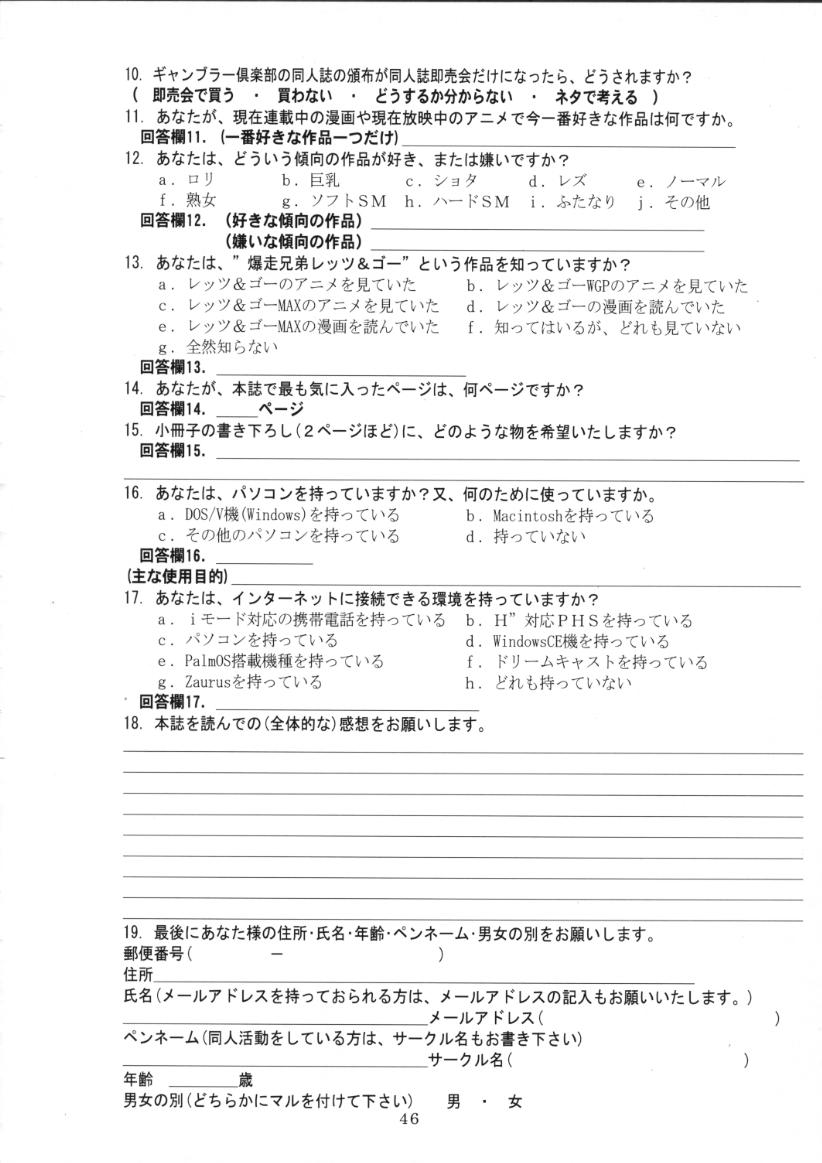 10. ギャンブラー倶楽部の同人誌の頒布が同人誌即売会だけになったら、どうされますか？
( 即売会で買う ・ 買わない ・ どうするか分からない ・ ネタで考える )
11. あなたが、現在連載中の漫画や現在放映中のアニメで今一番好きな作品は何ですか。
回答欄11. (一番好きな作品一つだけ)
12. あなたは、どういう傾向の作品が好き、または嫌いですか？
a. ロリ b. 巨乳 c. ショタ d. レズ e. ノーマル
f. 熟女 g. ソフトＳＭ h. ハードＳＭ i. ふたなり j. その他
回答欄12. (好きな傾向の作品)
(嫌いな傾向の作品)
13. あなたは、”爆走兄弟レッツ＆ゴー”という作品を知っていますか？
a. レッツ＆ゴーのアニメを見ていた b. レッツ＆ゴーWGPのアニメを見ていた
c. レッツ＆ゴーMAXのアニメを見ていた d. レッツ＆ゴーの漫画を読んでいた
e. レッツ＆ゴーMAXの漫画を読んでいた f. 知ってはいるが、どれも見ていない
g. 全然知らない
回答欄13.
14. あなたが、本誌で最も気に入ったページは、何ページですか？
回答欄14. ＿＿＿ページ
15. 小冊子の書き下ろし(２ページほど)に、どのような物を希望いたしますか？
回答欄15.
16. あなたは、パソコンを持っていますか？又、何のために使っていますか。
a. DOS/V機(Windows)を持っている b. Macintoshを持っている
c. その他のパソコンを持っている d. 持っていない
回答欄16.
(主な使用目的)
17. あなたは、インターネットに接続できる環境を持っていますか？
a. ｉモード対応の携帯電話を持っている b. Ｈ”対応ＰＨＳを持っている
c. パソコンを持っている d. WindowsCE機を持っている
e. PalmOS搭載機種を持っている f. ドリームキャストを持っている
g. Zaurusを持っている h. どれも持っていない
回答欄17.
18. 本誌を読んでの(全体的な)感想をお願いします。
19. 最後にあなた様の住所・氏名・年齢・ペンネーム・男女の別をお願いします。
郵便番号( － )
住所
氏名(メールアドレスを持っておられる方は、メールアドレスの記入もお願いいたします。)
メールアドレス( )
ペンネーム(同人活動をしている方は、サークル名もお書き下さい)
サークル名( )
年齢 ＿＿＿歳
男女の別(どちらかにマルを付けて下さい) 男 ・ 女
46